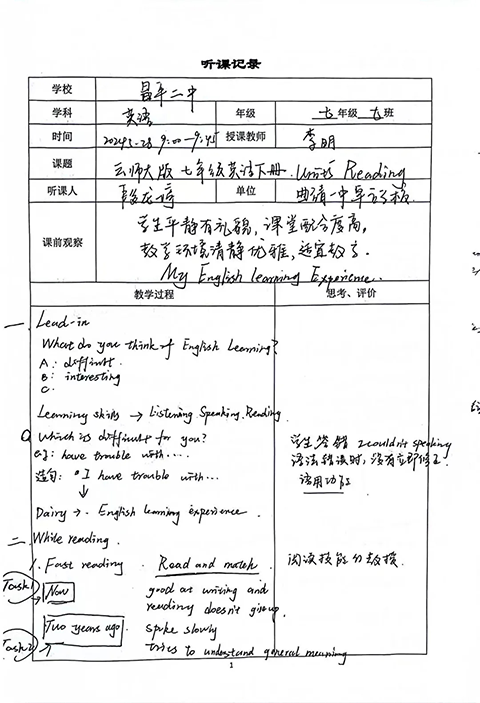 听课记录
学校 昌平二中
学科 英语 年级 七年级 九班
时间 2024.5.28 9:00—9:45 授课教师 李明
课题 云师大版七年级英语下册. Unit5 Reading
听课人 单位 曲靖一中卓立学校
课前观察 学生平静有礼貌，课堂配合度高，
教学环境清静优雅，适宜教学.
My English learning Experience.
教学过程 思考、评价
一 Lead-in
What do you think of English Learning?
A: difficult.
B: interesting
C.
Learning skills → Listening Speaking. Reading.
Q Which is difficult for you? 学生答错 couldn't speaking
eg: have trouble with···· 语法错误时，没有立即修正.
造句: I have trouble with···· 语用功能
↓
Dairy → English learning experience.
二 While reading.
1. Fast reading Read and match 阅读技能的教授.
Task1 → Now good at writing and
reading doesn't give up.
Two years ago. spoke slowly
Task2 → tries to understand general meaning
1